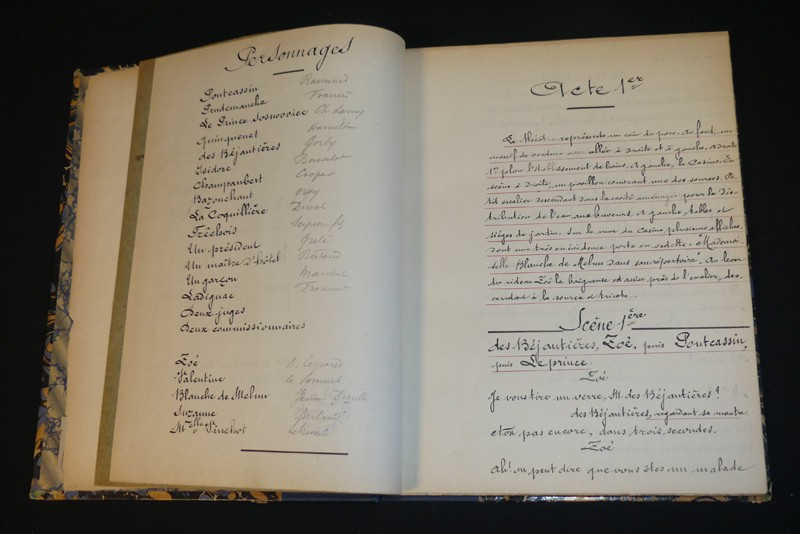 Personnages
Pontcassin Raimond
Prudemanche Francès
Le Prince Sosnovoice Ch. Lamy
Quinquenet Hamilton
des Béjantières Gorby
Isidore
Champaubert Cooper
Bazonchant
La Coquillière Duval
Frêchois
Un président
Un maître d'hôtel
Un garçon
Ladignac
Deux juges
Deux commissionnaires
Zoé
Valentine
Blanche de Melun
Suzanne
Mlle Pinchot
Acte 1er
Le théâtre représente un coin du parc. Au fond, un
massif de verdure avec allée à droite et à gauche. A droite
1er plan l'établissement de bains. A gauche, le Casino. En
scène à droite, un pavillon couvrant une des sources. Pe-
tit escalier descendant dans la cavité aménagée pour la dis-
tribution de l'eau aux buveurs. A gauche, tables et
sièges de jardin. Sur le mur du Casino plusieurs affiches
dont une très en évidence porte en vedette "Mademoi-
selle Blanche de Melun dans son répertoire". Au lever
du rideau Zoé la baigneuse est assise près de l'escalier, des-
cendant à la source d'
Scène 1ère
des Béjantières, Zoé, puis Pontcassin,
puis Le prince.
Zoé
Je vous tire un verre, M. des Béjantières?
des Béjantières, regardant sa montre
Non pas encore, dans trois secondes.
Zoé
Ah! on peut dire que vous êtes un malade